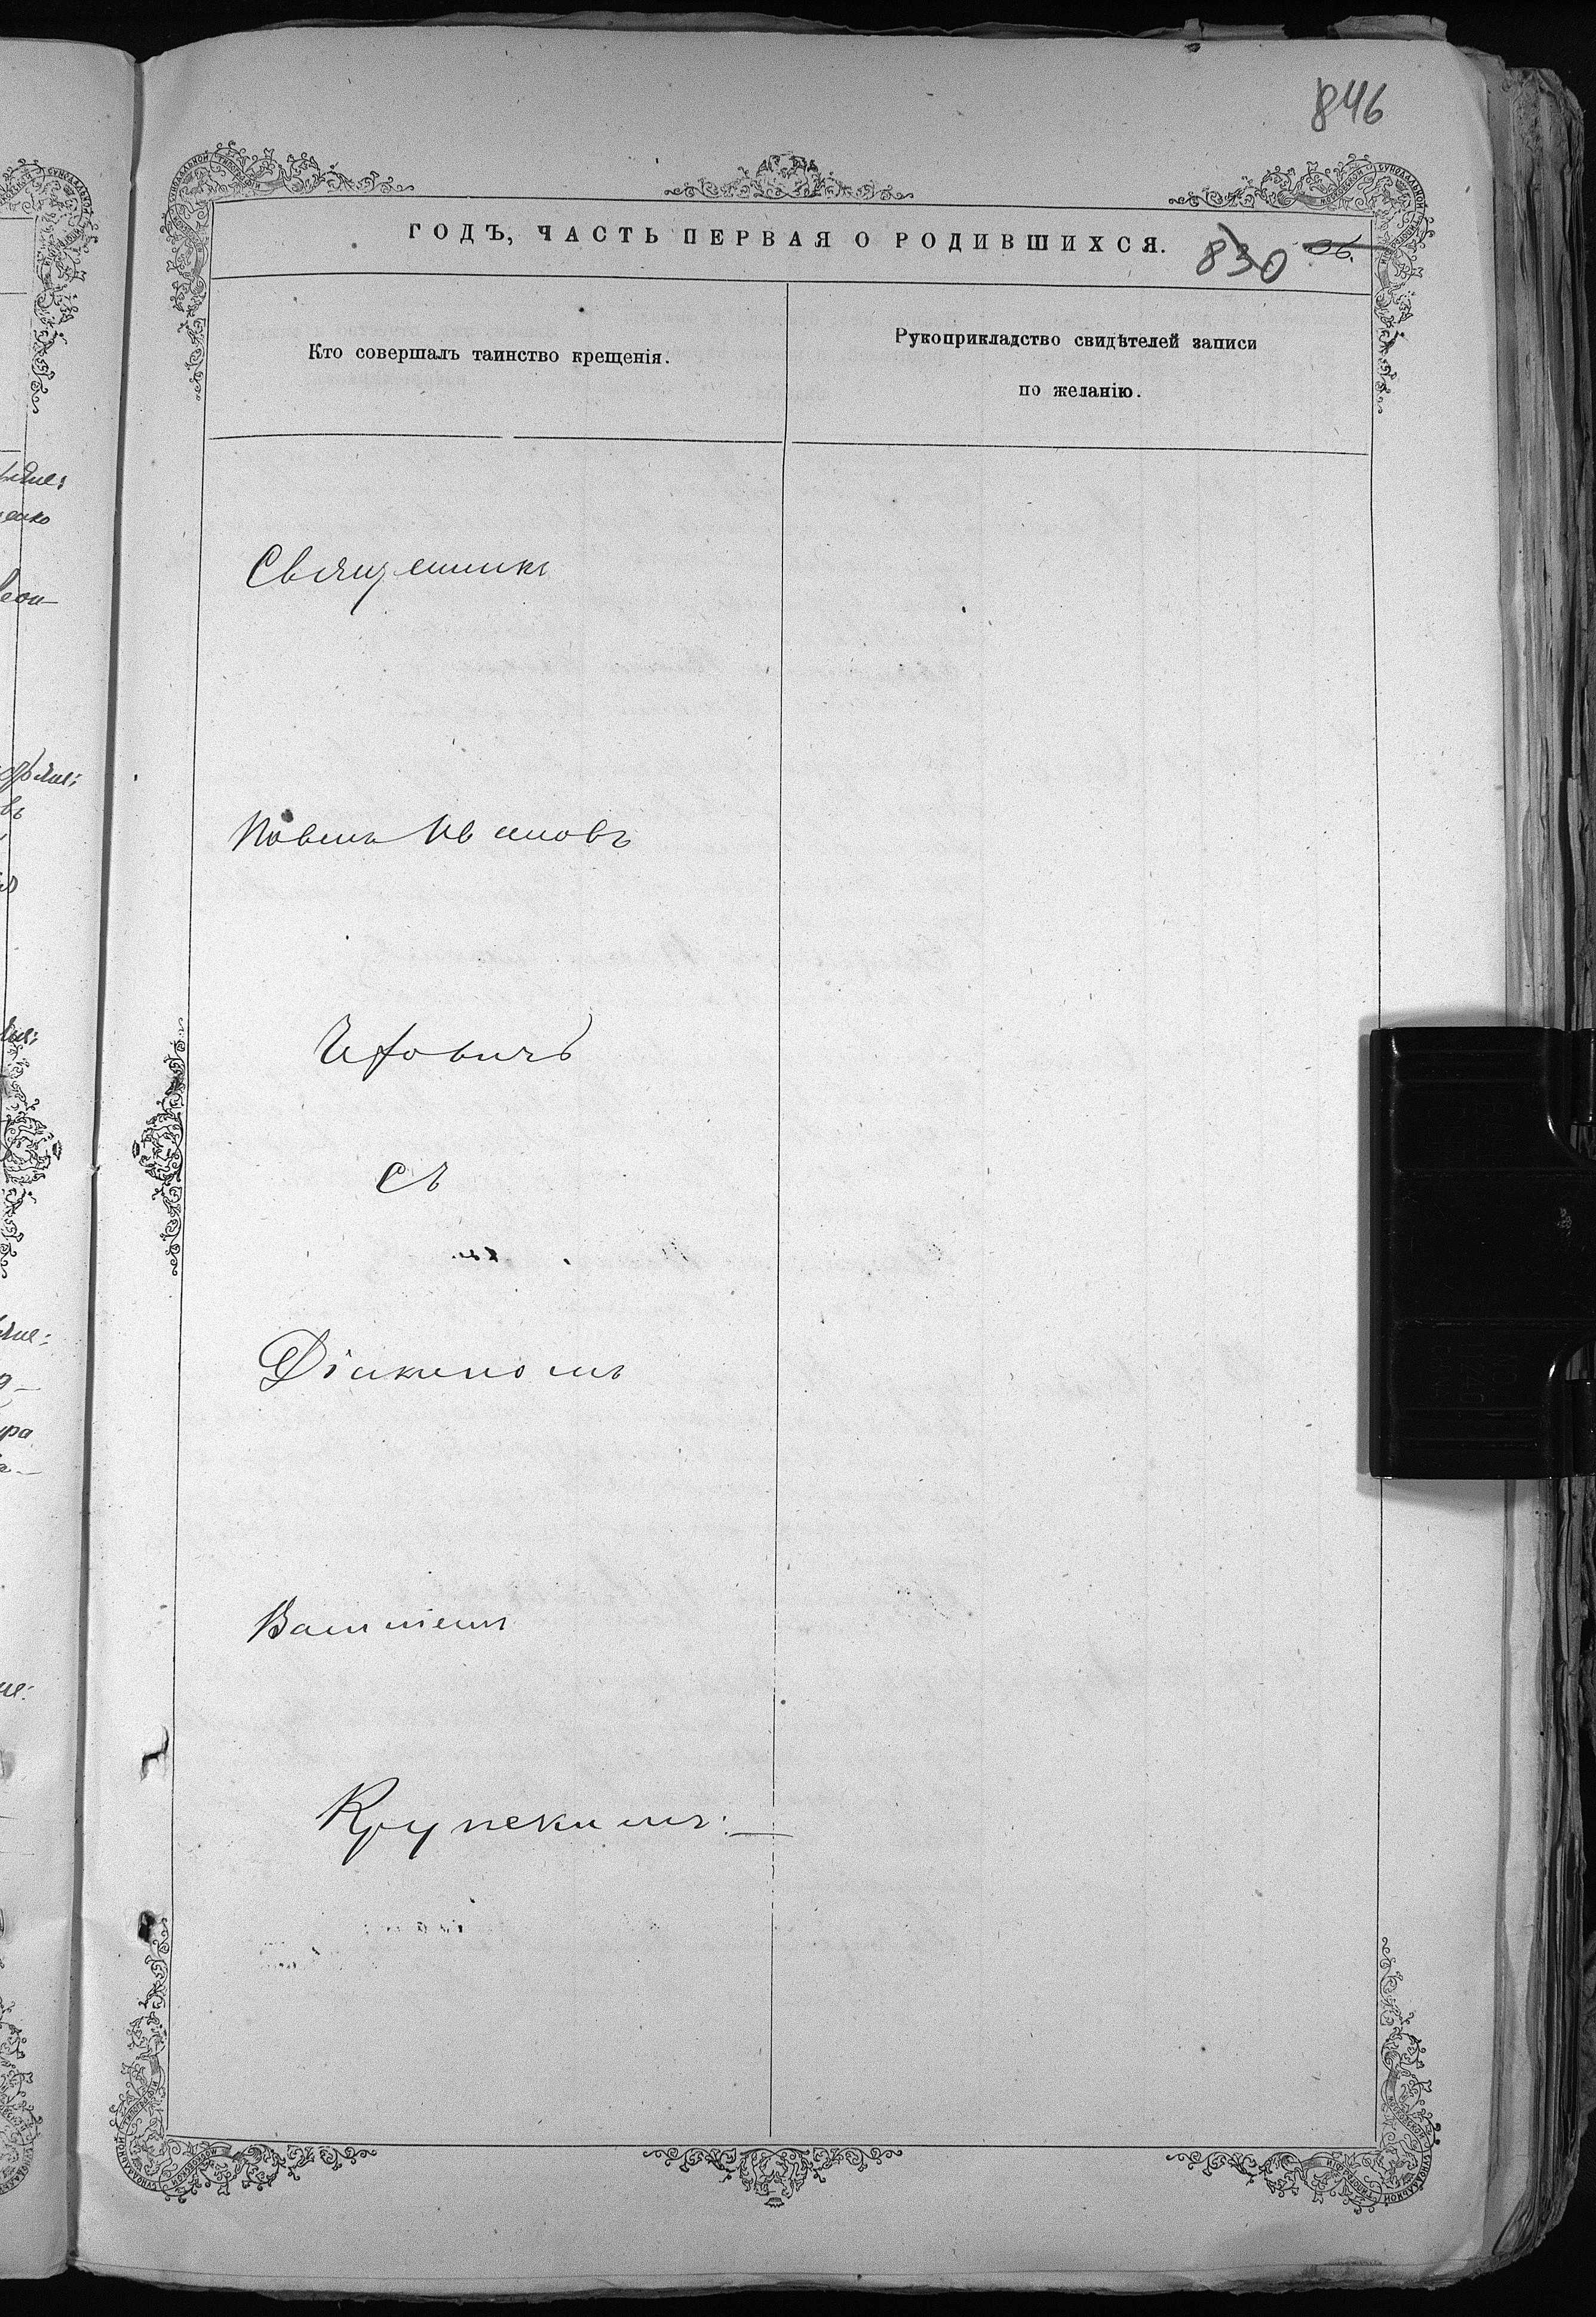 846
ГОДЪ, ЧАСТЬ ПЕРВАЯ О РОДИВШИХСЯ.
830
Кто совершалъ таинство крещенія.
Рукоприкладство свидѣтелей записи
по желанію.
Священникъ
Павелъ Ивановъ
съ
Діакономъ
Василіемъ
Крупскимъ: